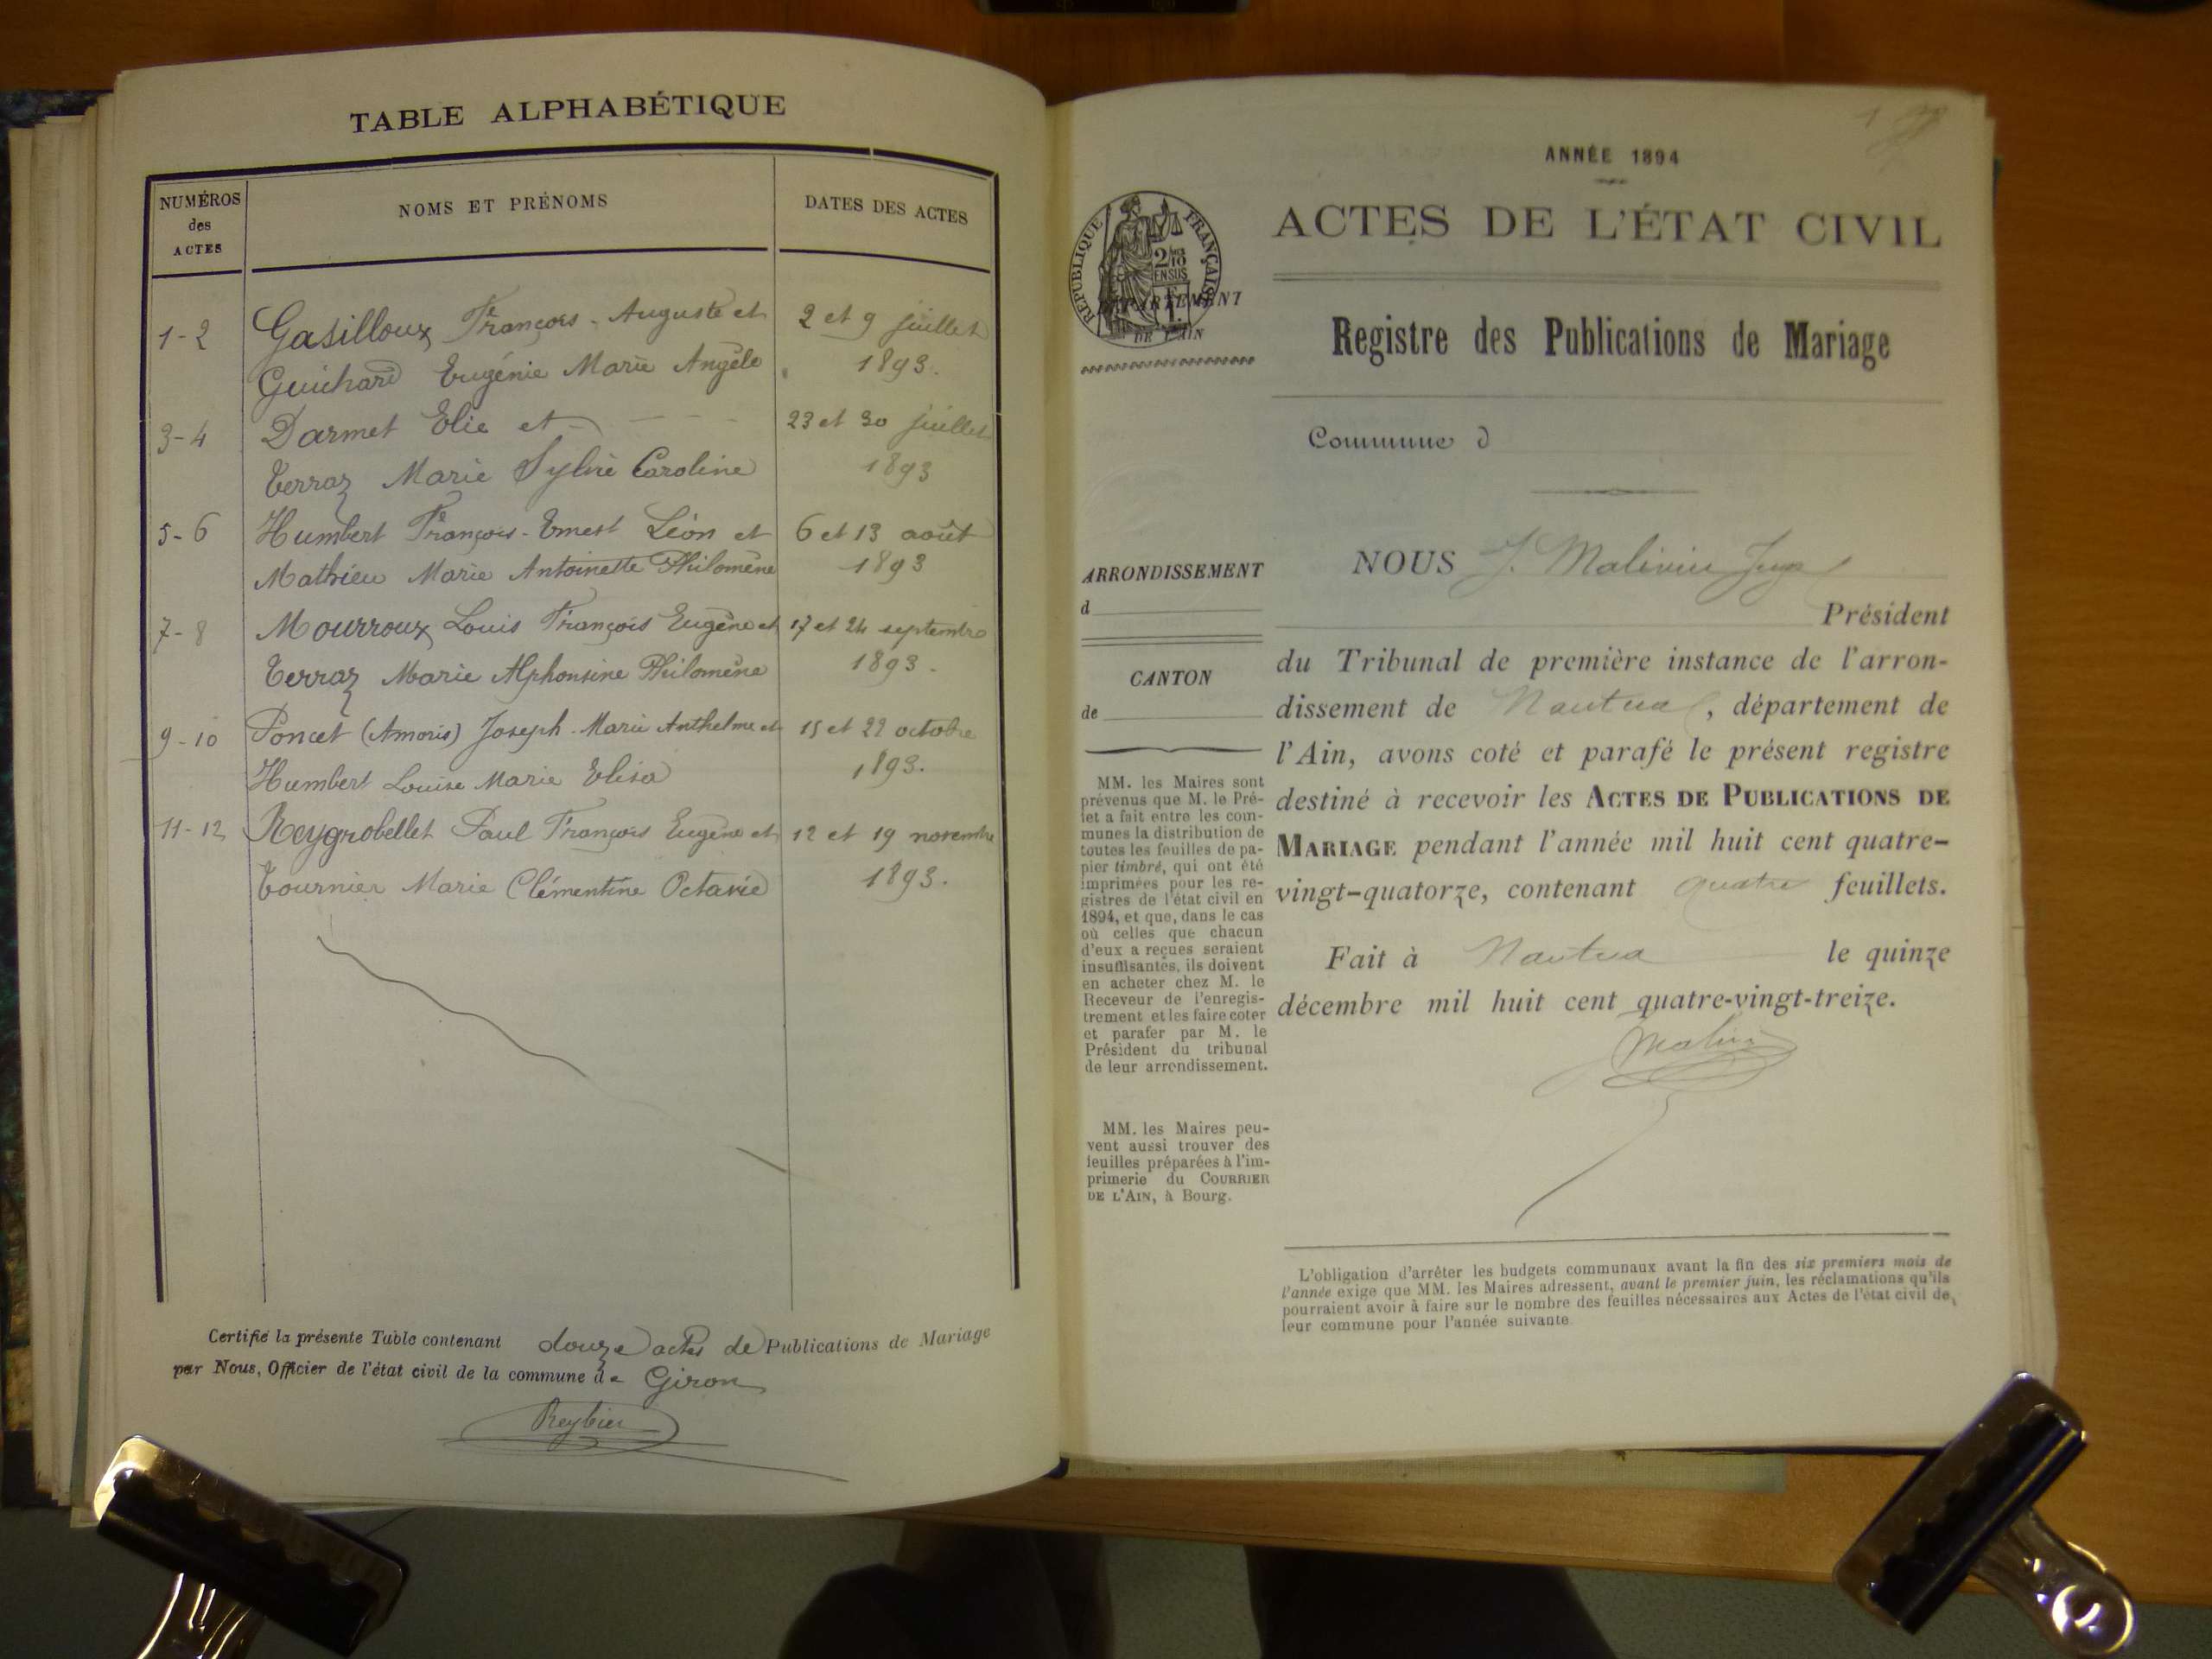 TABLE ALPHABÉTIQUE
NUMÉROS
des
ACTES
NOMS ET PRÉNOMS
DATES DES ACTES
1-2 Gasilloux François-Auguste et 2 et 9 juillet
Guichard Eugénie Marie Angèle 1893.
3-4 Darmet Elie et 23 et 30 juillet
Terraz Marie Sylvie Caroline 1893
5-6 Humbert François-Ernest Léon et 6 et 13 août
Mathieu Marie Antoinette Philomène 1893
7-8 Mourroux Louis François Eugène et 17 et 24 septembre
Terraz Marie Alphonsine Philomène 1893.
9-10 Poncet (Amoris) Joseph-Marie Anthelme et 15 et 22 octobre
Humbert Louise Marie Elisa 1893.
11-12 Reygrobellet Paul François Eugène et 12 et 19 novembre
Tournier Marie Clémentine Octavie 1893.
Certifié la présente Table contenant douze actes de Publications de Mariage
par Nous, Officier de l'état civil de la commune de Giron
Reybier
1
ANNÉE 1894
ACTES DE L'ÉTAT CIVIL
RÉPUBLIQUE FRANÇAISE
2/10
EN SUS
DÉPARTEMENT
DE L'AIN
Registre des Publications de Mariage
Commune d
ARRONDISSEMENT
d
CANTON
de
MM. les Maires sont
prévenus que M. le Pré-
fet a fait entre les com-
munes la distribution de
toutes les feuilles de pa-
pier timbré, qui ont été
imprimées pour les re-
gistres de l'état civil en
1894, et que, dans le cas
où celles que chacun
d'eux a reçues seraient
insuffisantes, ils doivent
en acheter chez M. le
Receveur de l'enregis-
trement et les faire coter
et parafer par M. le
Président du tribunal
de leur arrondissement.
MM. les Maires peu-
vent aussi trouver des
feuilles préparées à l'im-
primerie du COURRIER
DE L'AIN, à Bourg.
NOUS J.
Président
du Tribunal de première instance de l'arron-
dissement de Nantua, département de
l'Ain, avons coté et parafé le présent registre
destiné à recevoir les ACTES DE PUBLICATIONS DE
MARIAGE pendant l'année mil huit cent quatre-
vingt-quatorze, contenant quatre feuillets.
Fait à Nantua le quinze
décembre mil huit cent quatre-vingt-treize.
L'obligation d'arrêter les budgets communaux avant la fin des six premiers mois de
l'année exige que MM. les Maires adressent, avant le premier juin, les réclamations qu'ils
pourraient avoir à faire sur le nombre des feuilles nécessaires aux Actes de l'état civil de
leur commune pour l'année suivante